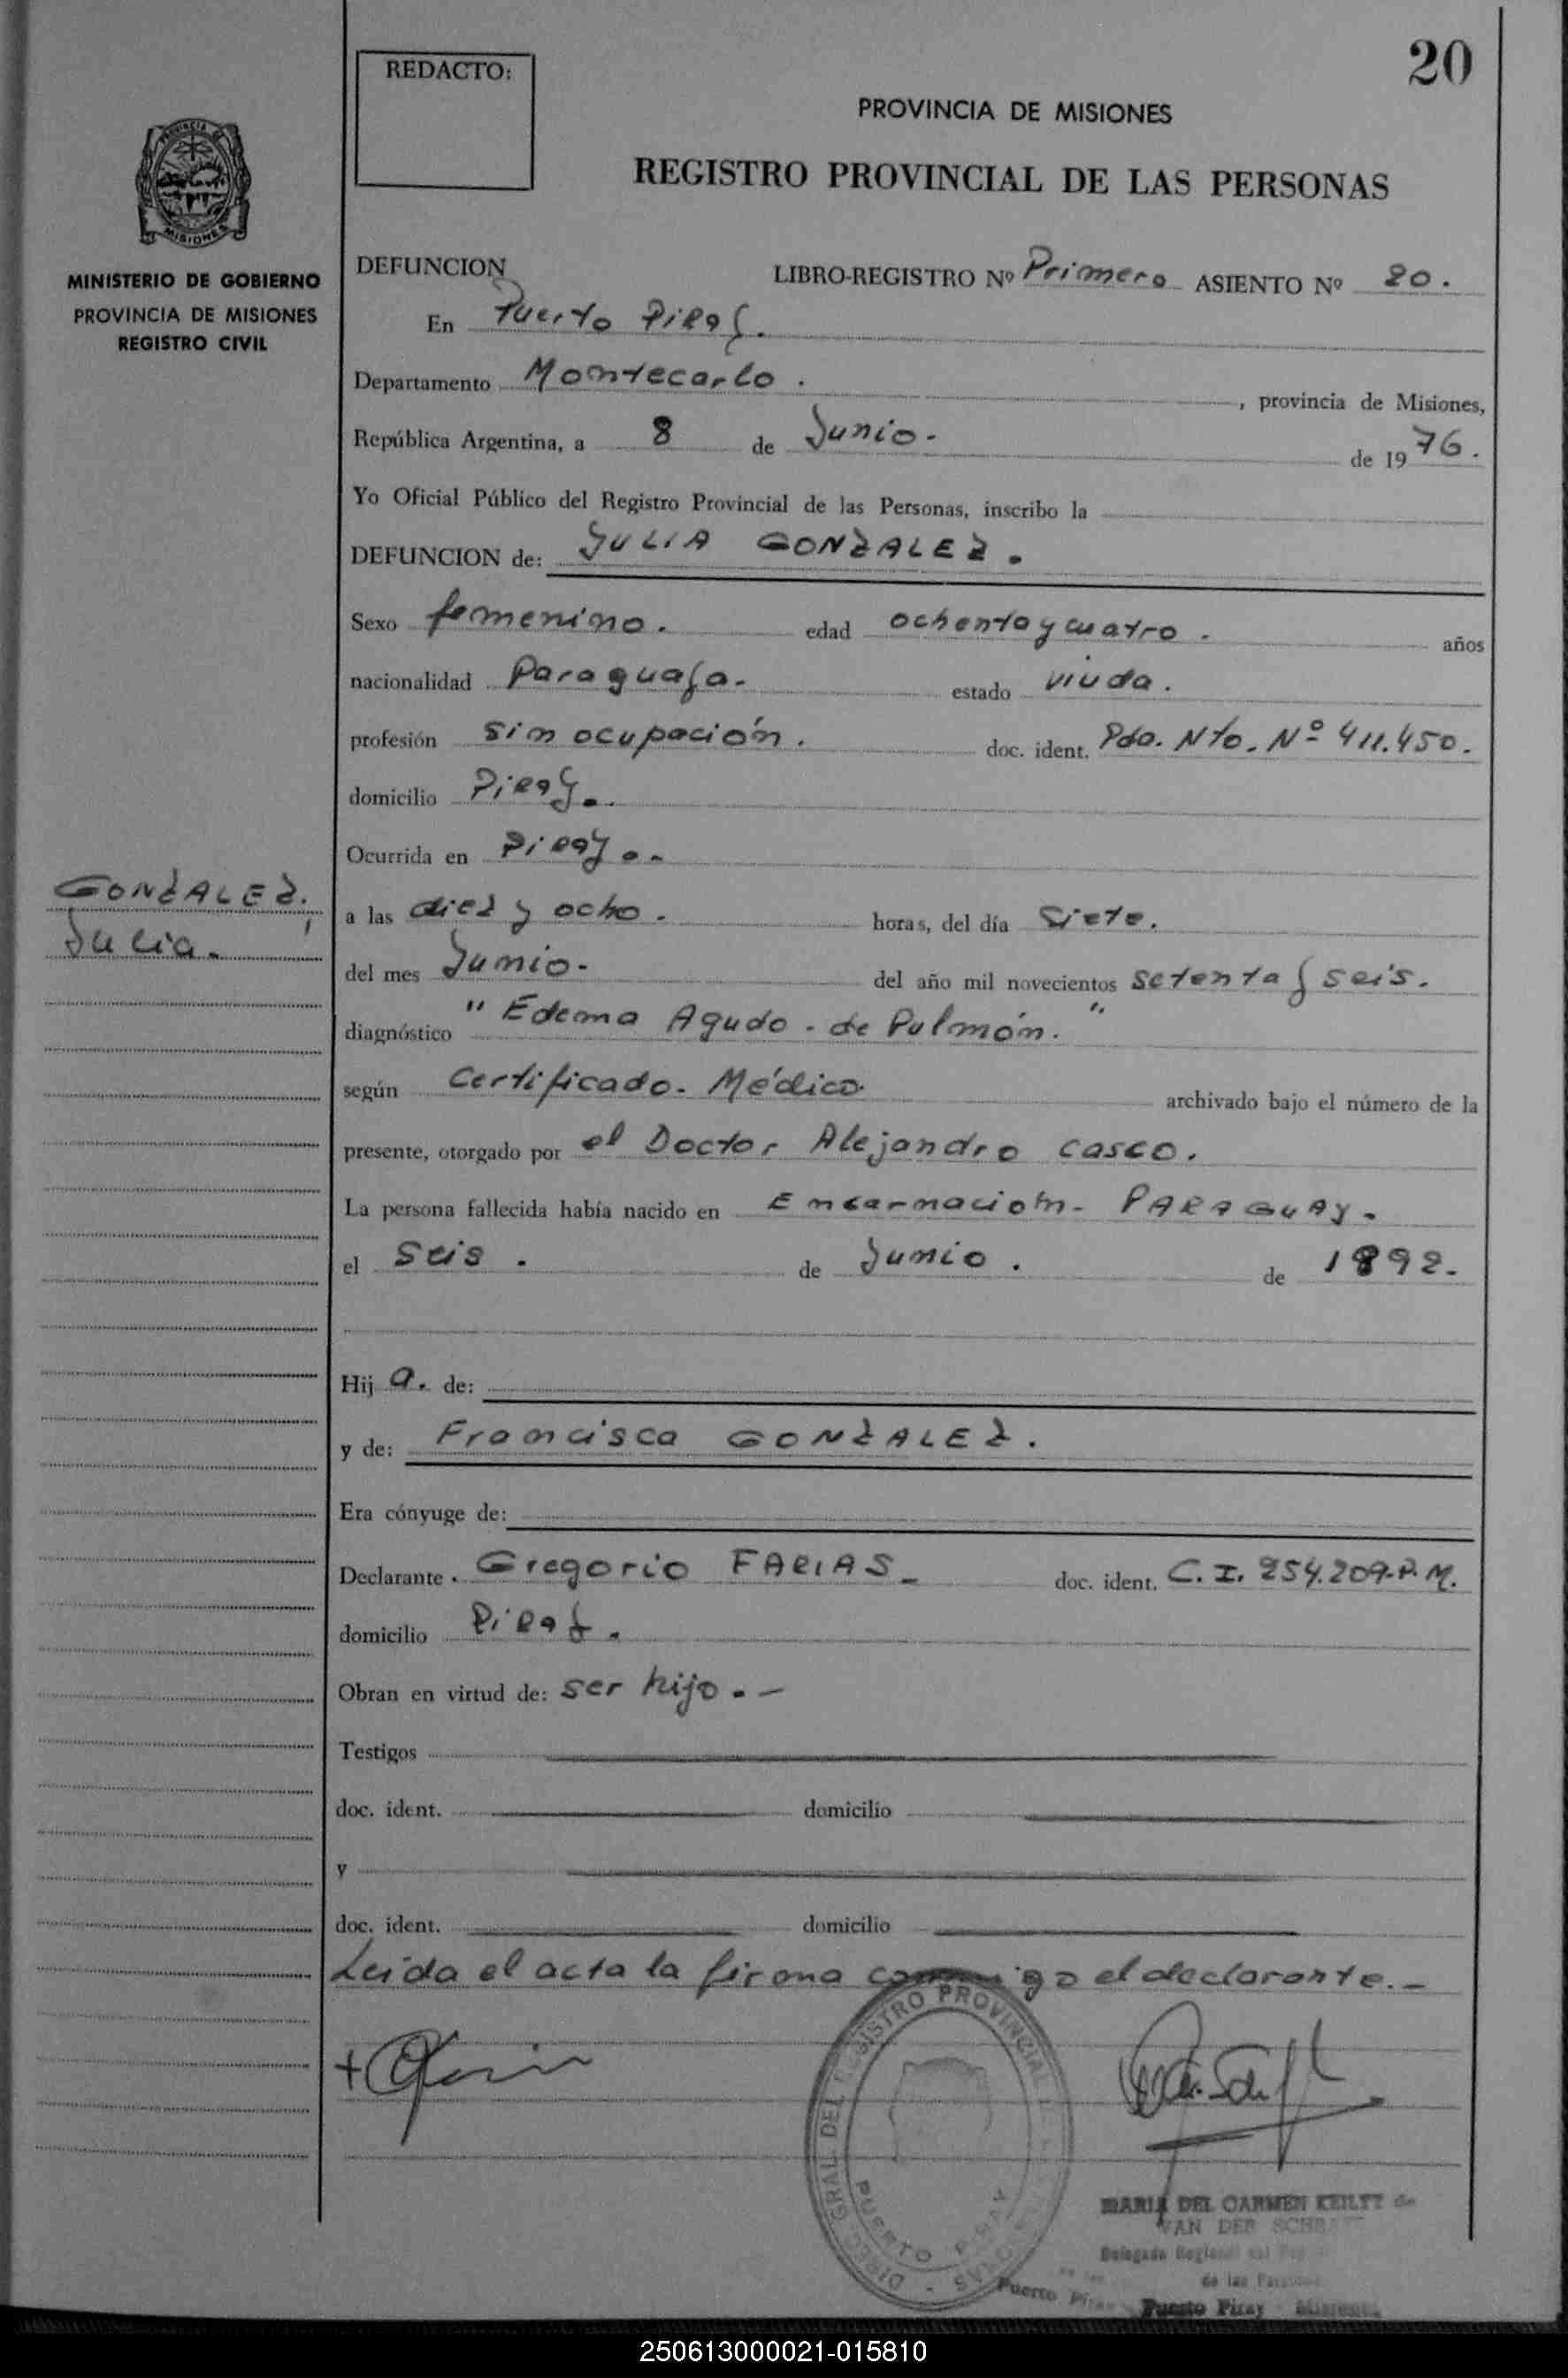 20
REDACTO:
PROVINCIA DE MISIONES
REGISTRO PROVINCIAL DE LAS PERSONAS
PROVINCIA DE
MISIONES
MINISTERIO DE GOBIERNO
PROVINCIA DE MISIONES
REGISTRO CIVIL
DEFUNCION
LIBRO-REGISTRO Nº Primero ASIENTO Nº 20.
En Puerto Piray.
Departamento Montecarlo. , provincia de Misiones,
República Argentina, a 8 de Junio. de 1976.
Yo Oficial Público del Registro Provincial de las Personas, inscribo la
DEFUNCION de: JULIA GONZALEZ.
Sexo femenino. edad ochenta y cuatro. años
nacionalidad Paraguaya. estado viuda.
profesión sin ocupación. doc. ident. Pdo. Nto. Nº 411.450.
domicilio Piray.
Ocurrida en Piray.
GONZALEZ.
Julia.
a las diez y ocho. horas, del día Siete.
del mes Junio. del año mil novecientos setenta y seis.
diagnóstico "Edema Agudo. de Pulmón."
según Certificado. Médico. archivado bajo el número de la
presente, otorgado por el Doctor Alejandro Casco.
La persona fallecida había nacido en Encarnación. PARAGUAY.
el seis. de Junio. de 1892.
Hij a. de:
y de: Francisca GONZALEZ.
Era cónyuge de:
Declarante. Gregorio FARIAS- doc. ident. C. I. 254.209.P.M.
domicilio Piray.
Obran en virtud de: ser hijo.-
Testigos
doc. ident. domicilio
y
doc. ident. domicilio
Leida el acta la firma conmigo el declarante.-
DIREC. GRAL. DEL REGISTRO PROVINCIAL
PUERTO PIRAY
MARIA DEL CARMEN KEILTY de
VAN DER
Delegada
de las
Puerto Piray
Puerto Piray - Misiones
250613000021-015810